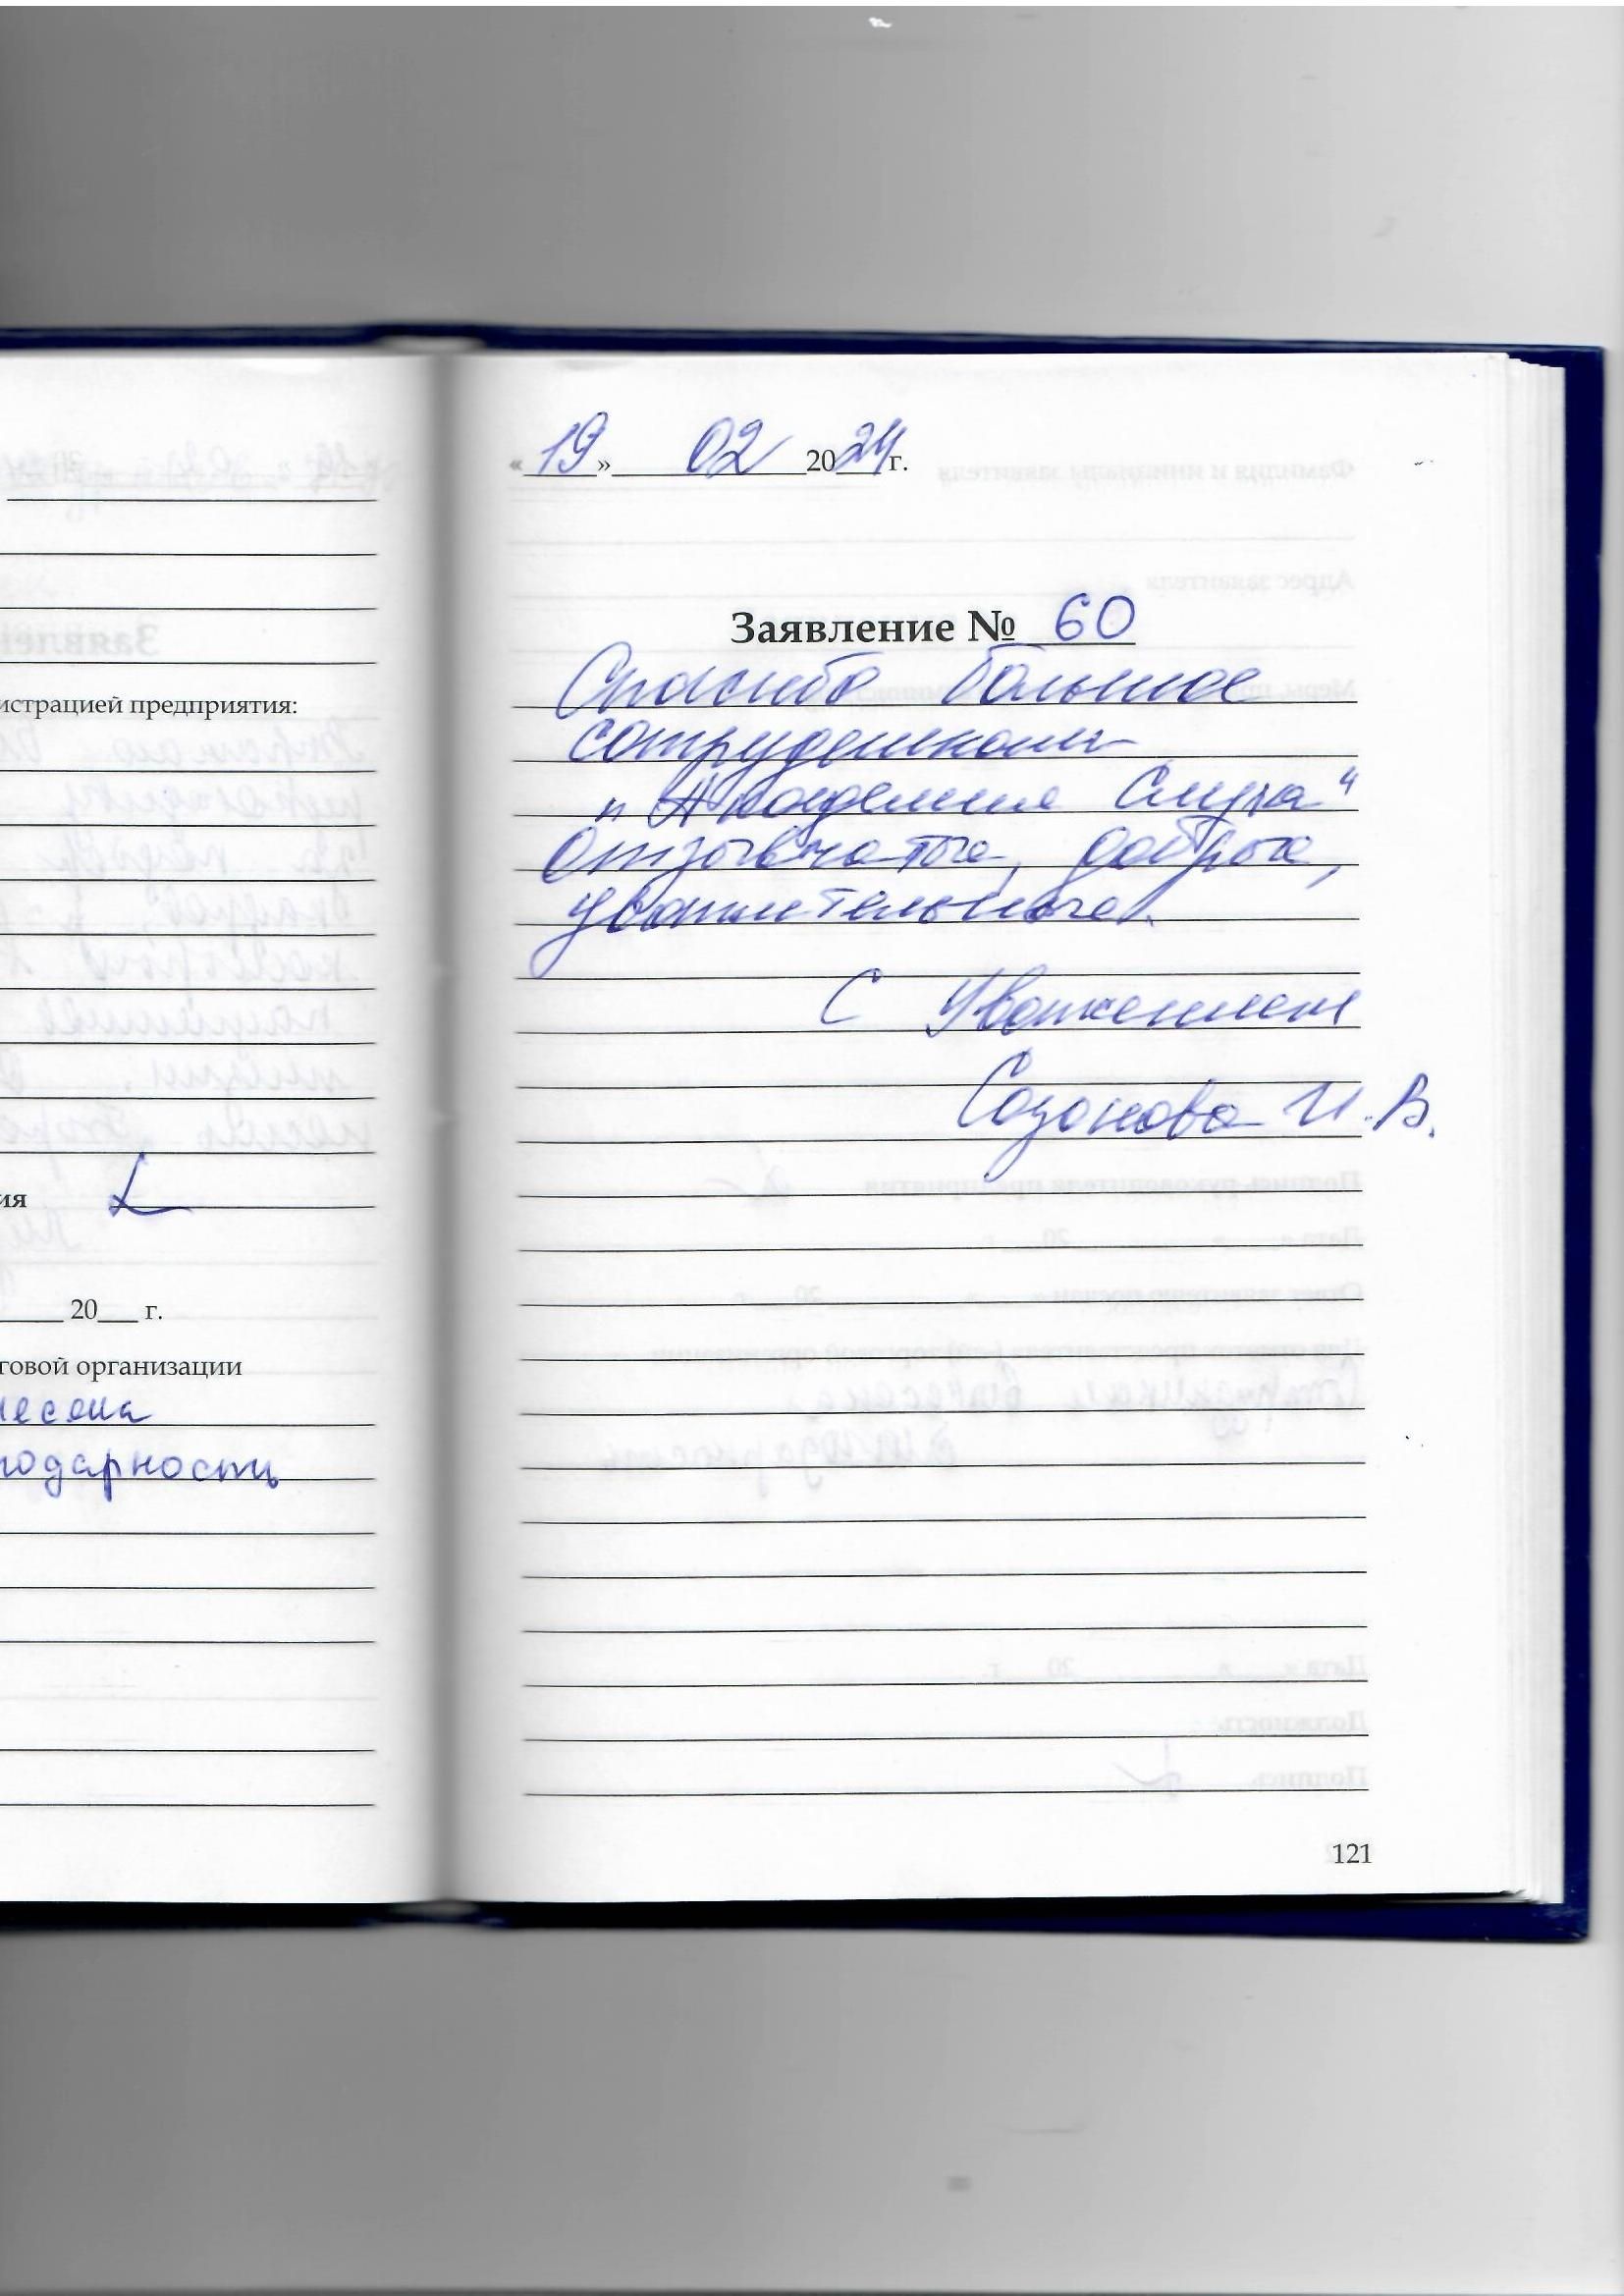 истрацией предприятия:
ия
20 г.
говой организации
несена
годарность
« 19 » 02 2024 г.
Заявление № 60
Спасибо большое
сотрудникам
" Академия Слуха "
Отзывчатые, добрые,
уважительные.
С Уважением
Созонова И. В.
121